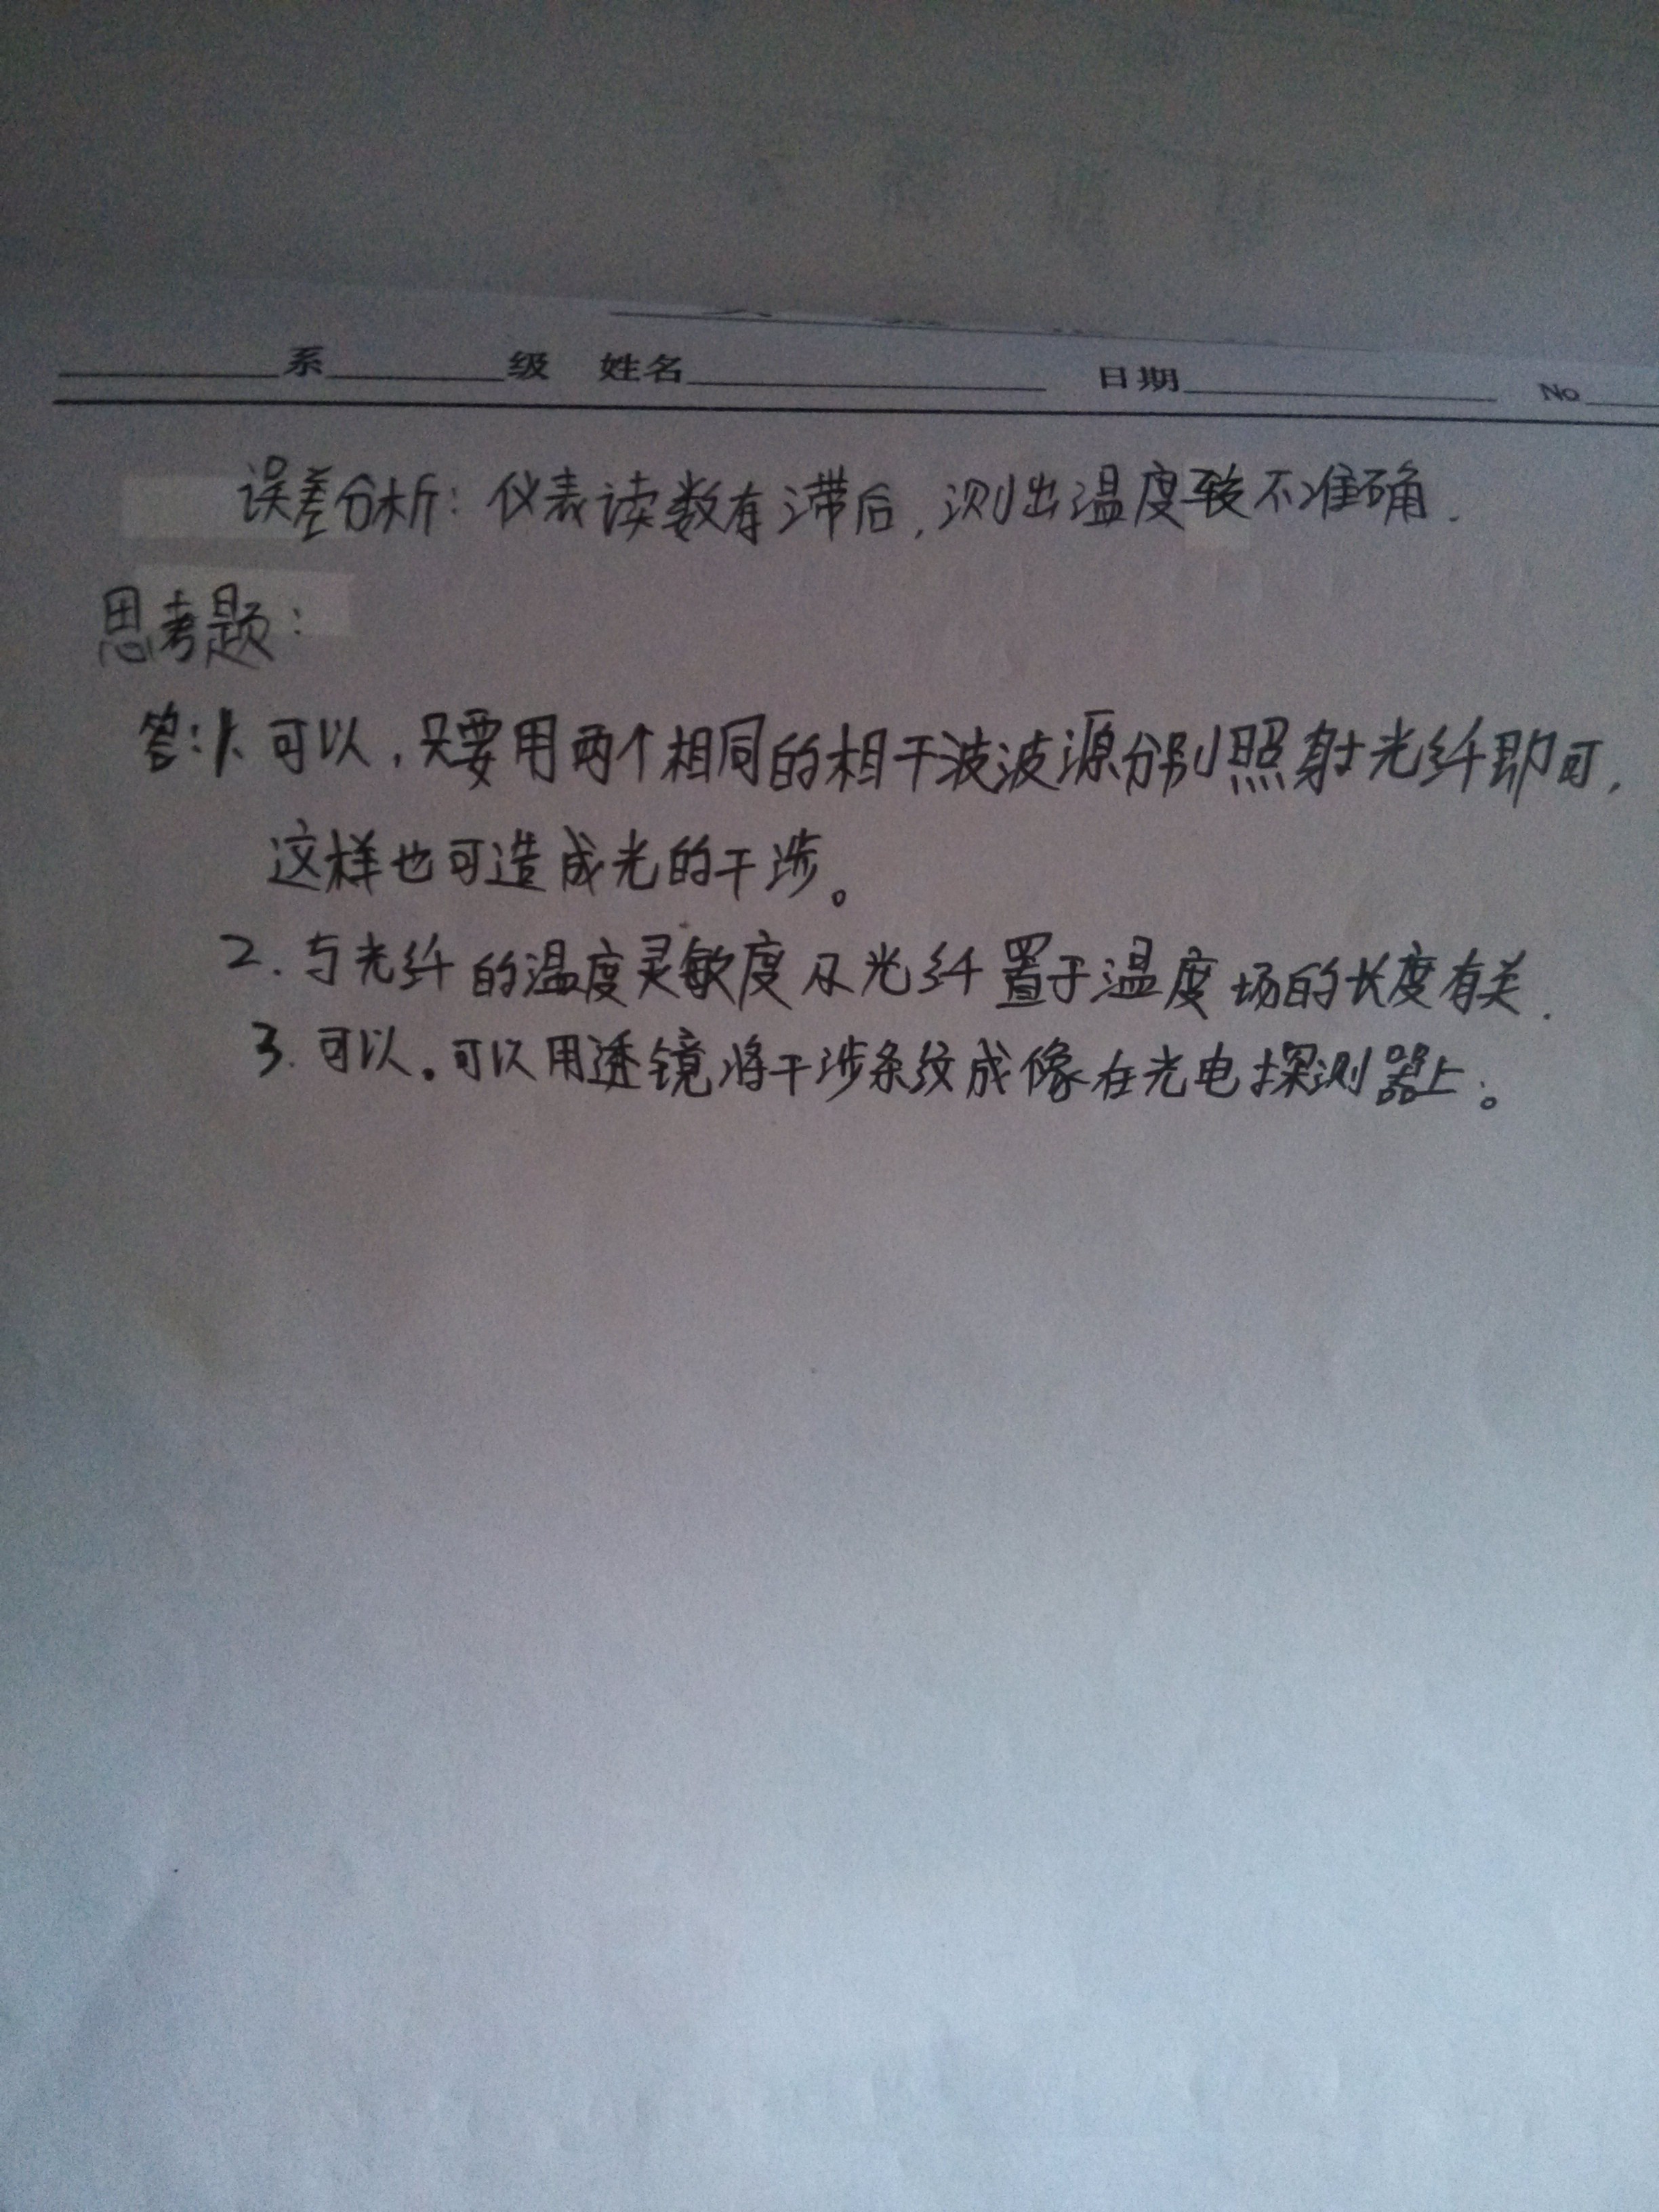 系 级 姓名 日期 No
误差分析：仪表读数有滞后，测出温度较不准确.
思考题：
答：1. 可以，只要用两个相同的相干波波源分别照射光纤即可，
这样也可造成光的干涉。
2. 与光纤的温度灵敏度及光纤置于温度场的长度有关.
3. 可以。可以用透镜将干涉条纹成像在光电探测器上。